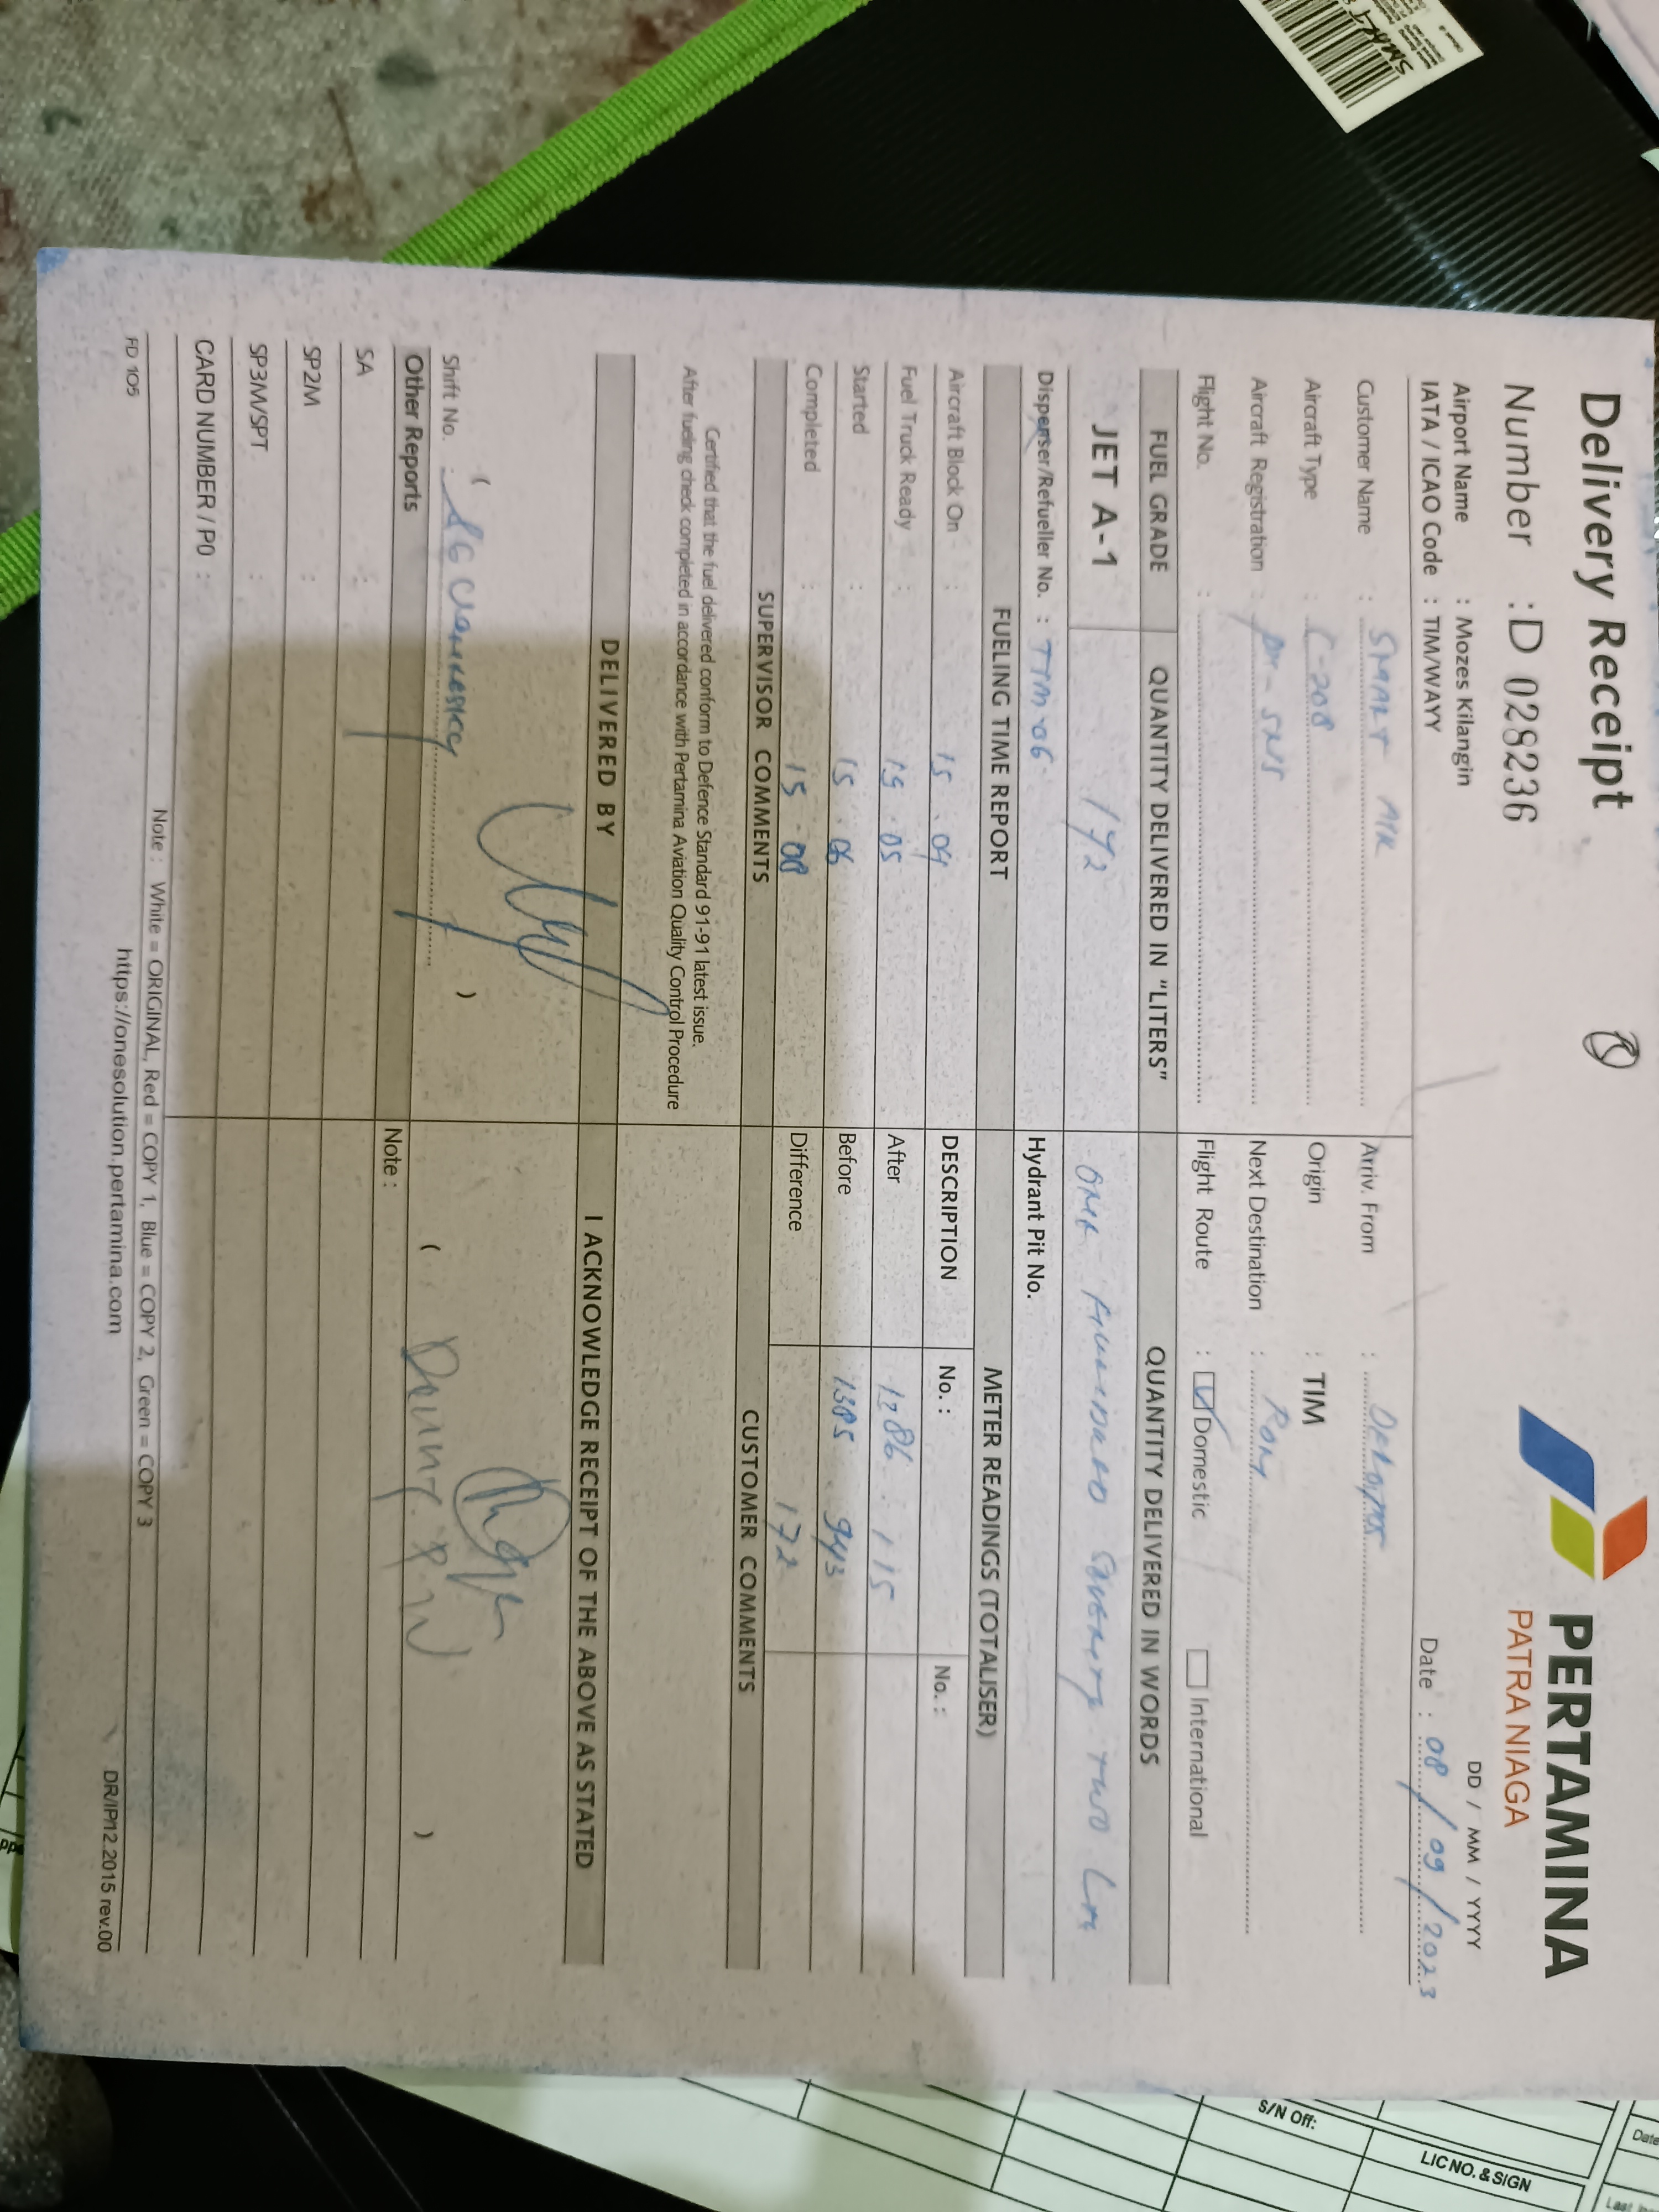 Delivery Receipt
PERTAMINA
PATRA NIAGA
Number : D 028236
DD / MM / YYYY
Airport Name : Mozes Kilangin
IATA / ICAO Code : TIM/WAYY
Date : 08 / 09 / 2023
Customer Name : SMART AIR
Arriv. From :
Aircraft Type : C-208
Origin : TIM
Aircraft Registration :
Next Destination :
Flight No. :
Flight Route : Domestic International
FUEL GRADE QUANTITY DELIVERED IN "LITERS" QUANTITY DELIVERED IN WORDS
JET A-1 172 One Hundred Seventy Two
Dispenser/Refueller No. : TIM-06
Hydrant Pit No.
FUELING TIME REPORT METER READINGS (TOTALISER)
Aircraft Block On : 15.04 DESCRIPTION No. : No. :
Fuel Truck Ready : 15.05 After 1386 115
Started : 15.06 Before 1385 943
Completed : 15.08 Difference 172
SUPERVISOR COMMENTS CUSTOMER COMMENTS
Certified that the fuel delivered conform to Defence Standard 91-91 latest issue.
After fueling check completed in accordance with Pertamina Aviation Quality Control Procedure
DELIVERED BY I ACKNOWLEDGE RECEIPT OF THE ABOVE AS STATED
( )
( )
Shift No. :
Other Reports Note :
SA :
SP2M :
SP3M/SPT :
CARD NUMBER / PO :
Note : White = ORIGINAL, Red = COPY 1, Blue = COPY 2, Green = COPY 3
FD 105
https://onesolution.pertamina.com
DR/IP/12.2015 rev.00
SMART
S/N Off:
LIC NO. & SIGN
Date